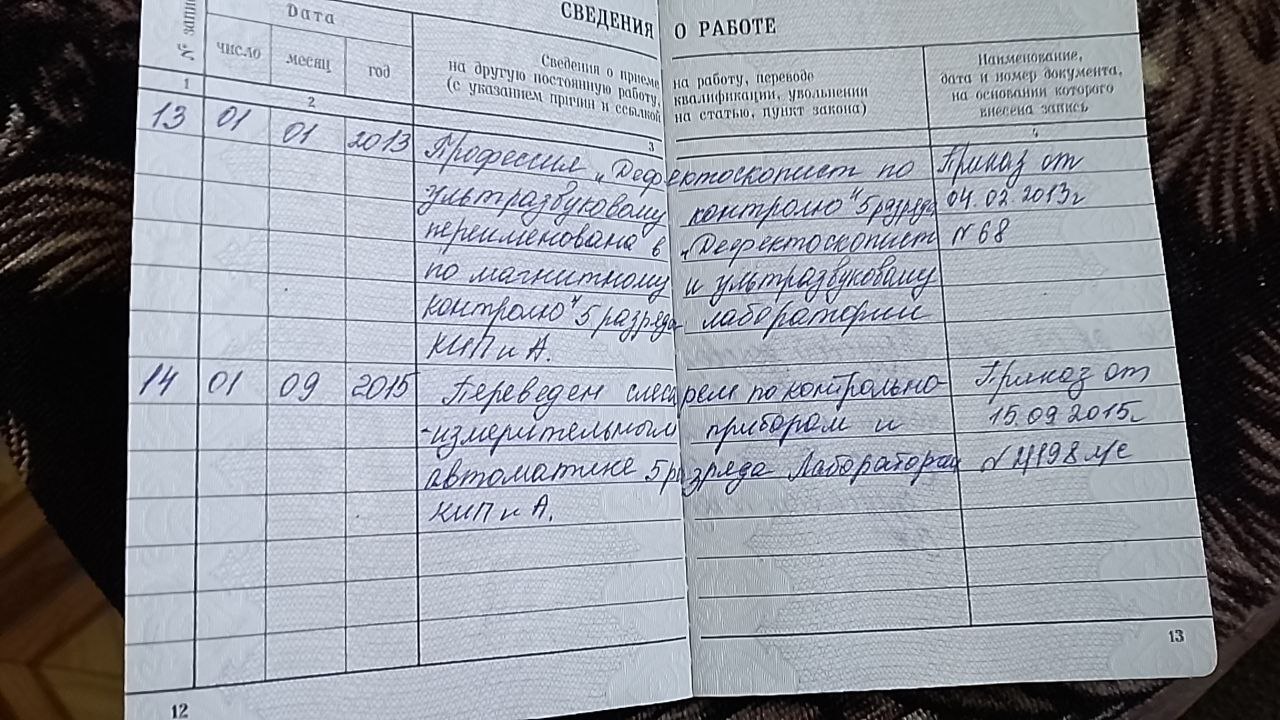 СВЕДЕНИЯ О РАБОТЕ
№ запи
Дата
число месяц год
Сведения о приеме на работу, переводе
на другую постоянную работу, квалификации, увольнении
(с указанием причин и ссылкой на статью, пункт закона)
Наименование,
дата и номер документа,
на основании которого
внесена запись
1 2 3 4
13 01 01 2013 Профессия „Дефектоскопист по Приказ от
ультразвуковому контролю" 5 разряда 04.02.2013г
переименована в „Дефектоскопист N 68
по магнитному и ультразвуковому
контролю" 5 разряда лаборатории
КИП и А.
14 01 09 2015 Переведен слесарем по контрольно- Приказ от
-измерительным приборам и 15.09 2015г
автоматике 5 разряда Лаборатории N
КИП и А.
12
13